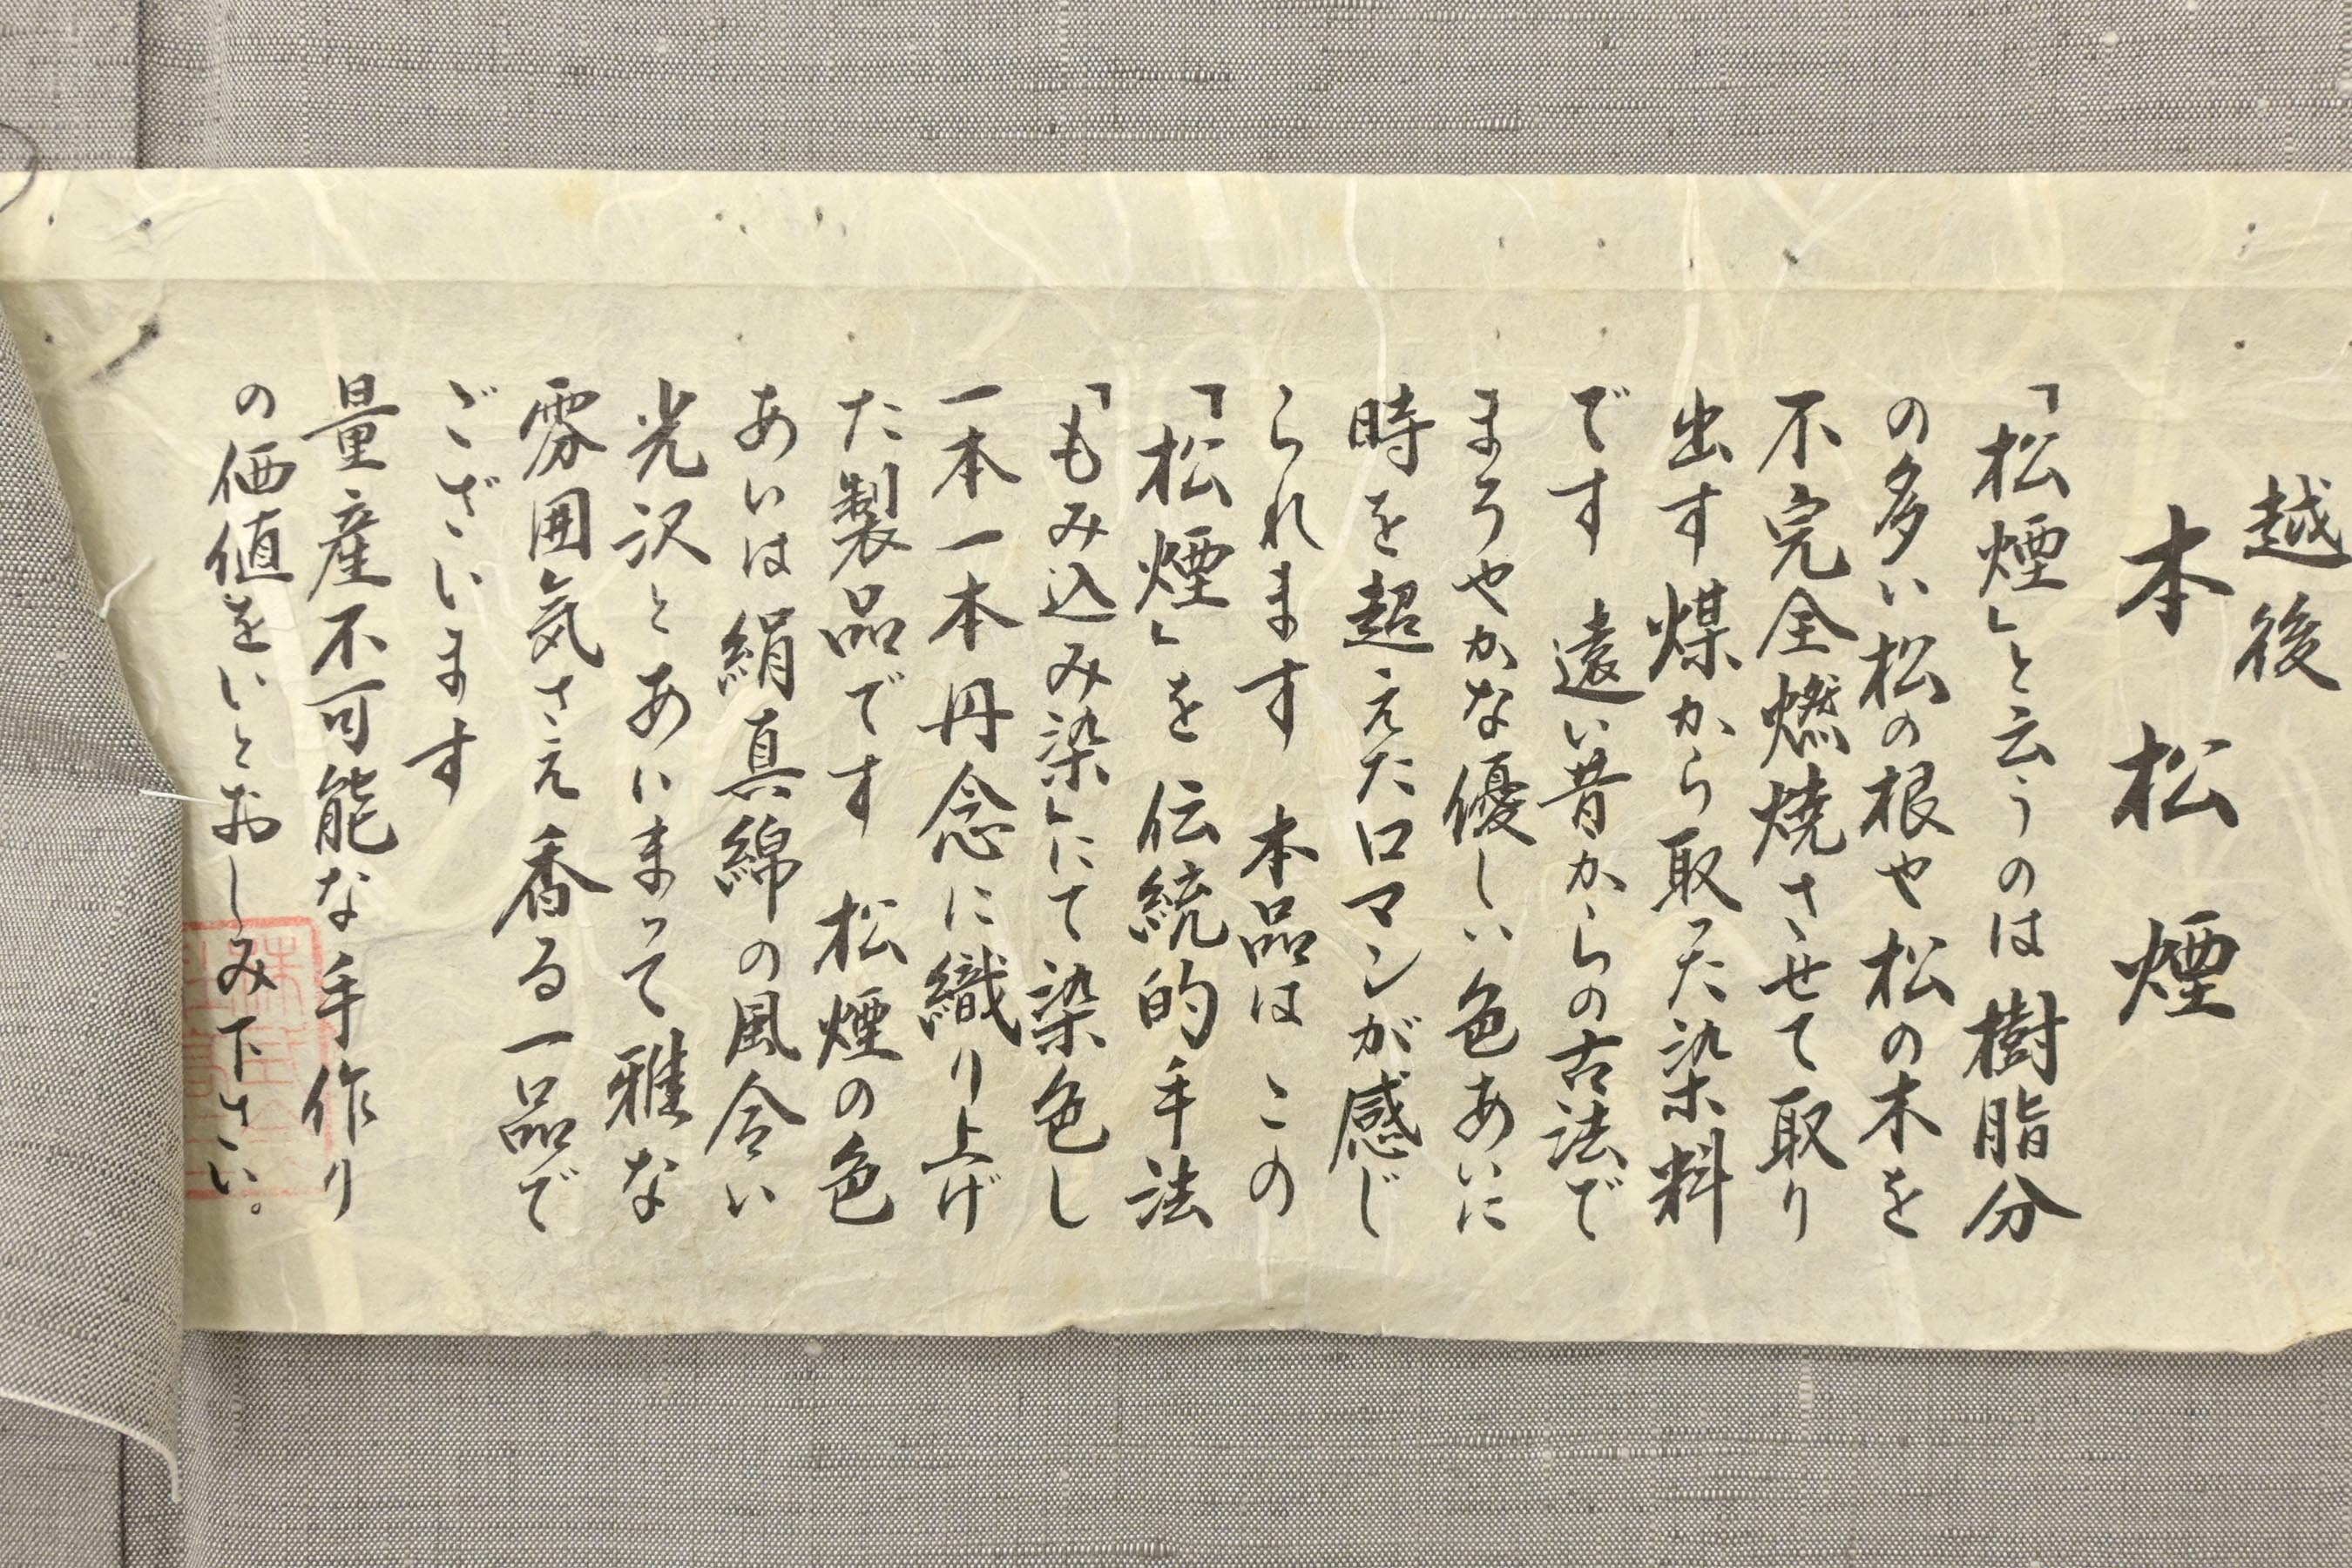 越後
本松煙
「松煙」と云うのは樹脂分
の多い松の根や松の木を
不完全燃焼させて取り
出す煤から取った染料
です 遠い昔からの古法で
まろやかな優しい色あいに
時を超えたロマンが感じ
られます 本品はこの
「松煙」を伝統的手法
「もみ込み染」にて染色し
一本一本丹念に織り上げ
た製品です 松煙の色
あいは絹真綿の風合い
光沢とあいまって雅な
雰囲気さえ香る一品で
ございます
量産不可能な手作り
の価値をいとおしみ下さい。